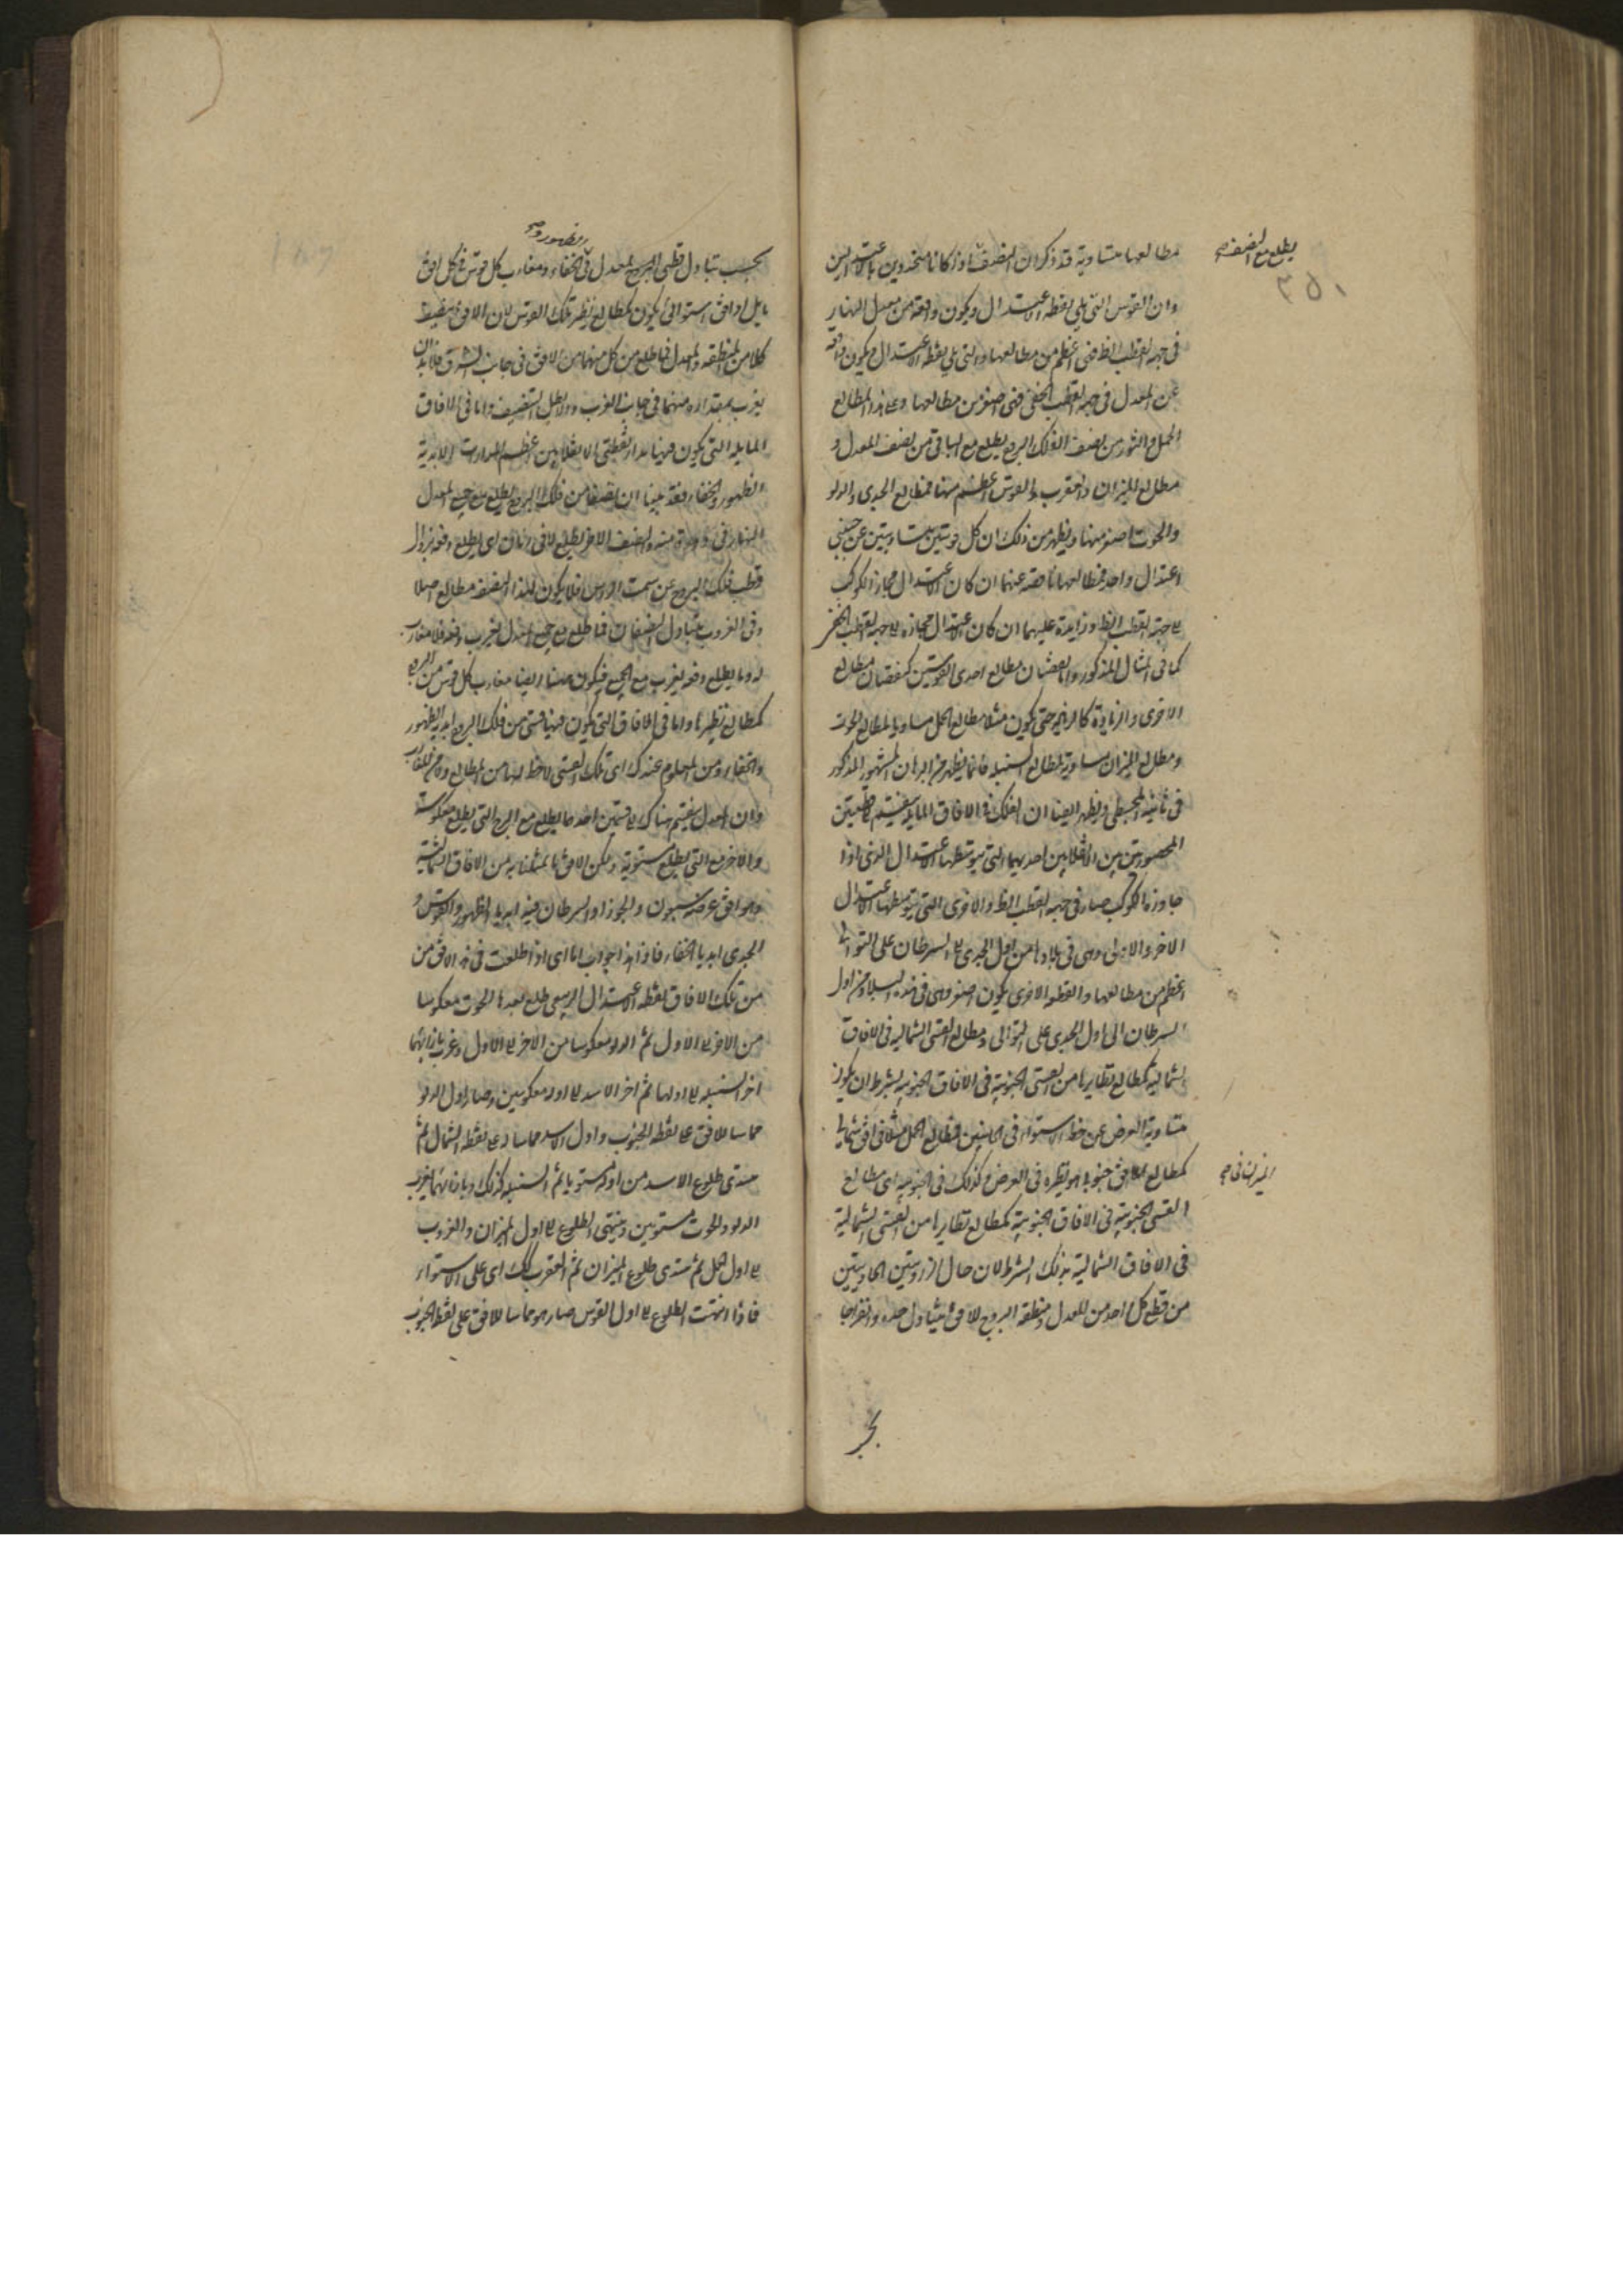 مطالعها متساوية قد ذكر ان النصفين اذا كانا متحدين بالاعتدالين
يطلع مع النصف صح
٣٥١
وان القوس التى يلى نقطه الاعتدال ويكون واقعة من معدل النهار
فى جهة القطب الظ فهى اعظم من مطالعها والتى يلى نقطه الاعتدال ويكون واقعه
عن المعدل فى جهة القطب الخفى فهى اصغر من مطالعها وعلى هذا المطالع
الحمل والثور من نصف الفلك البروج يطلع مع الباقى من نصف المعدل و
مطالع الميزان والعقرب والقوس اعظم منها فمطالع الجدى والدلو
والحوت اصغر منها ويظهر من ذلك ان كل قوسين متساويتين عن جنبى
اعتدال واحد فمطالعهما ناقصه عنهما ان كان الاعتدال مجاز الكوكب
الى جهة القطب الظ وزايدة عليهما ان كان الاعتدال مجازه الى جهة القطب الخفى
كما فى المثال المذكور واما نقصان مطالع احدى القوسين كنقصان مطالع
الاخرى والزيادة كالزيادة حتى يكون مثلا مطالع الحمل مساويا لمطالع الحوت
ومطالع الميزان مساوية لمطالع السنبله فانما يظهر من البرهان المشهور المذكور
فى ثانية المجسطى ويظهر ايضا ان الفلك فى الافاق المايلة ينقسم بالقطعتين
المحصورتين بين الانقلابين احديهما التى يتوسطها الاعتدال الذى اذا
جاوزه الكوكب صار فى جهة القطب الظ والاخرى التى يتوسطها الاعتدال
الاخر والاولى وهى فى بلادنا من اول الجدى الى السرطان على التوالى
اعظم من مطالعها والقطعه الاخرى يكون اصغر وهى فى هذه البلاد من اول
السرطان الى اول الجدى على التوالى ومطالع القسى الشماليه فى الافاق
الشماليه كمطالع نظايرها من القسى الجنوبية فى الافاق الجنوبيه بشرط ان يكون
متساوية العرض عن خط الاستواء فى الجانبين فمطالع الحمل مثلا فى افق شمالى
كمطالع افق جنوبى هو نظيره فى العرض وكذلك فى الجنوبيه اى مطالع
الميزان فى صح
القسى الجنوبية فى الافاق الجنوبية كمطالع نظايرها من القسى الشمالية
فى الافاق الشمالية بذلك الشرط لان حال الزاويتين الحادثتين
من قطع كل احد من المعدل ومنطقة البروج للافق يتبادل حدة وانفراجا
بحسب
وظهورا صح
بحسب تبادل قطبى البروج المعدل فى الخفاء ومغارب كل قوس فى كل افق
مايل او افق استوائى يكون كمطالع نظير تلك القوس لان الافق ينصف
كلا من المنطقه والمعدل فما طلع من كل منهما من الافق فى جانب الشرق فلا بد ان
يغرب بمقداره منهما فى جانب الغرب والا بطل التنصيف واما فى الافاق
المايله التى يكون فيها مدار نقطتى الانقلابين اعظم المدارات الابدية
الظهور والخفاء فقد بينا ان نصفا من فلك البروج يطلع مع جميع المعدل
النهار فى دورة منه والنصف الاخر يطلع لا فى زمان اى يطلع دفعه بزوال
قطب فلك البروج عن سمت الراس فلا يكون لهذا النصف مطالع اصلا
وفى الغروب يتبادل النصفان فما طلع مع جميع المعدل يغرب دفعه فلا مغارب
له وما يطلع دفعه يغرب مع الجميع فيكون هنا ايضا مغارب كل قوس من البروج
كمطالع نظيرتها واما فى الافاق التى يكون فيها قسى من فلك البروج ابدية الظهور
والخفاء ومن المعلوم عندك ان تلك القسى لاحظ لها من المطالع ومن المغارب
وان المعدل ينقسم هناك الى قسمين احدهما يطلع مع البروج التى يطلع معكوسة
والاخر مع التى يطلع مستوية وليكن الافق ما مثلنا به من الافاق الشمالية
وهو افق عرضه سبعون والجوزا والسرطان فيه ابديا الظهور والقوس و
الجدى ابديا الخفاء فاذا هذا جواب اما اى اذا طلعت فى هذه الافق من
من تلك الافاق نقطه الاعتدال الربيعى طلع بعدها الحوت معكوسا
من الاخر الى الاول ثم الدلو معكوسا من الاخر الى الاول وغرب بازائهما
اخر السنبله الى اولها ثم اخر الاسد الى اوله معكوسين وصار اول الدلو
مماسا للافق على نقطه الجنوب واول الاسد مماسا له على نقطه الشمال ثم
يبتدى طلوع الاسد من اوله مستويا ثم السنبله كذلك وبازائهما يغرب
الدلو والحوت مستويين وينتهى الطلوع الى اول الميزان والغروب
الى اول الحمل ثم يبتدى طلوع الميزان ثم العقرب كك اى على الاستواء
فاذا انتهت الطلوع الى اول القوس صار هو مماسا للافق على نقطه الجنوب